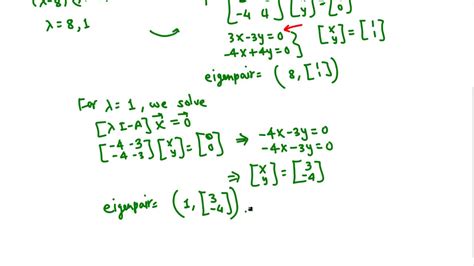 (λ-8)(
λ = 8, 1
[-4 4] [y] = [0]
3x-3y=0
-4x+4y=0 } [x y] = [1 1]
eigenpair = (8, [1 1])
For λ = 1, we solve
[λI-A] x = 0
[-4 -3 -4 -3] [x y] = [0 0] ⇒ -4x-3y=0
-4x-3y=0
⇒ [x y] = [3 -4]
eigenpair = (1, [3 -4]).